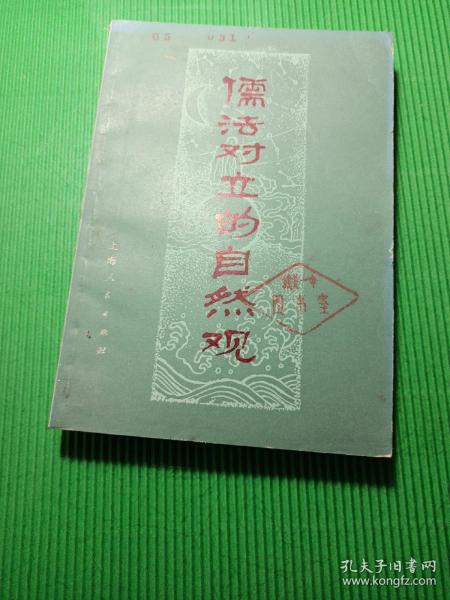 05 031
儒法对立的自然观
上海人民出版社
图书室
孔夫子旧书网
www.kongfz.com